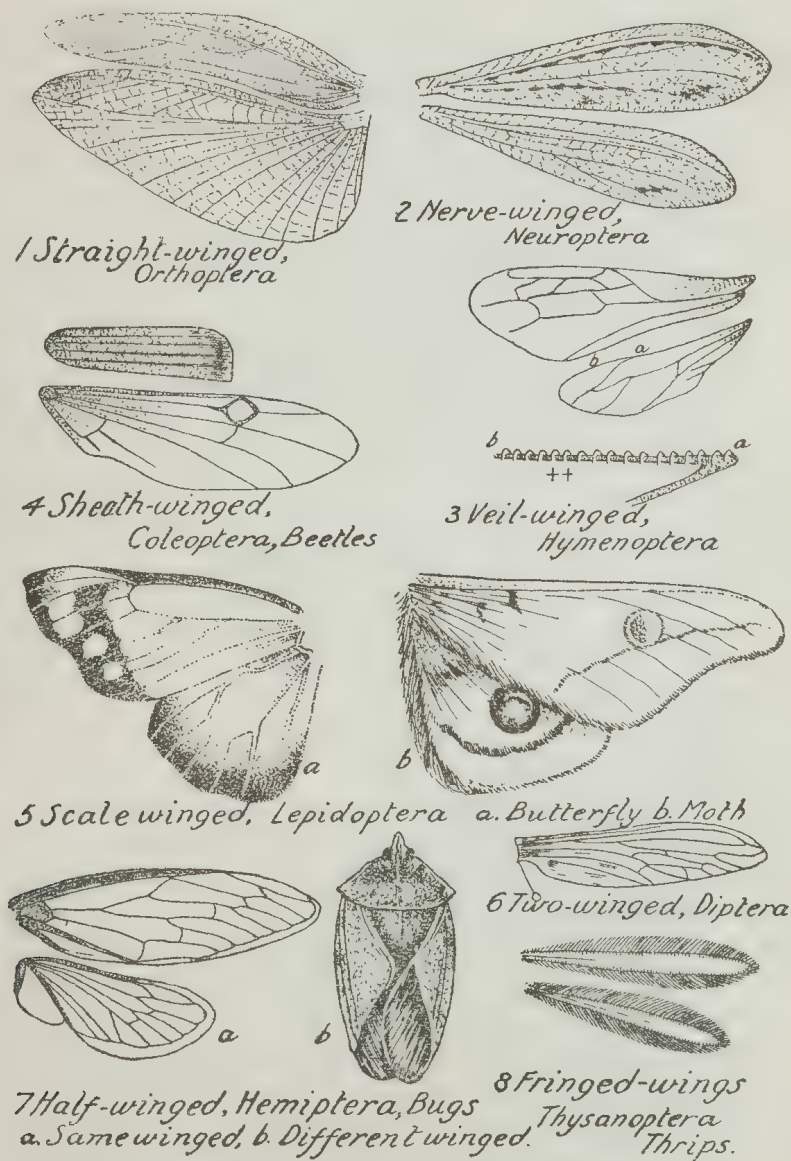 1 Straight-winged,
Orthoptera
2 Nerve-winged,
Neuroptera
a
b
b
a
++
3 Veil-winged,
Hymenoptera
4 Sheath-winged,
Coleoptera, Beetles
a
b
5 Scale winged, Lepidoptera a. Butterfly b. Moth
6 Two-winged, Diptera
a
b
7 Half-winged, Hemiptera, Bugs
a. Same winged, b. Different winged.
8 Fringed-wings
Thysanoptera
Thrips.